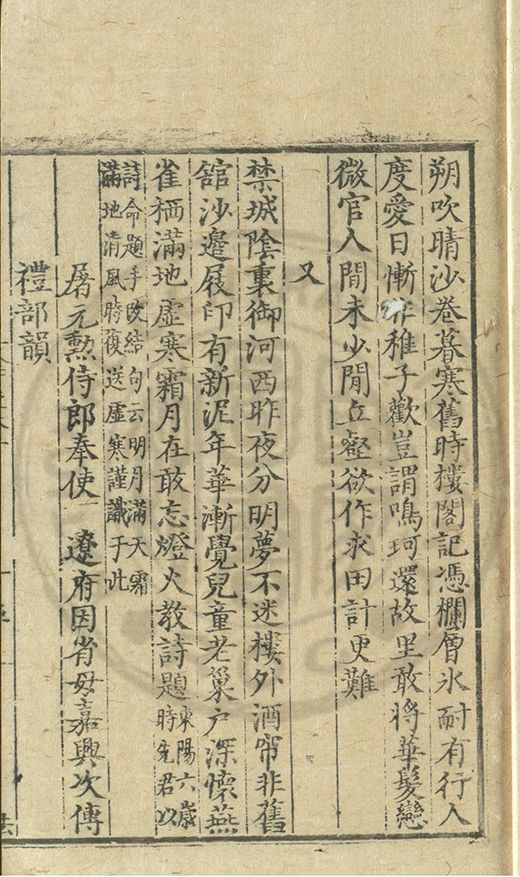 朔吹晴沙卷暮寒舊時樓閣記憑欄層氷耐有行人
度愛日慚非稚子歡豈謂鳴珂還故里敢將華髮戀
微官人間未少閒丘壑欲作求田計更難
又
禁城陰裏御河西昨夜分明夢不迷樓外酒帘非舊
舘沙邊屐印有新泥年華漸覺兒童老巢戶深懷燕
雀栖滿地虛寒霜月在敢忘燈火教詩題東陽六歲時先君以
詩命題手改結句云明月滿天霜
滿地清風時復送虛寒謹識于此
屠元勲侍郎奉使 遼府因省母嘉興次傳
禮部韻